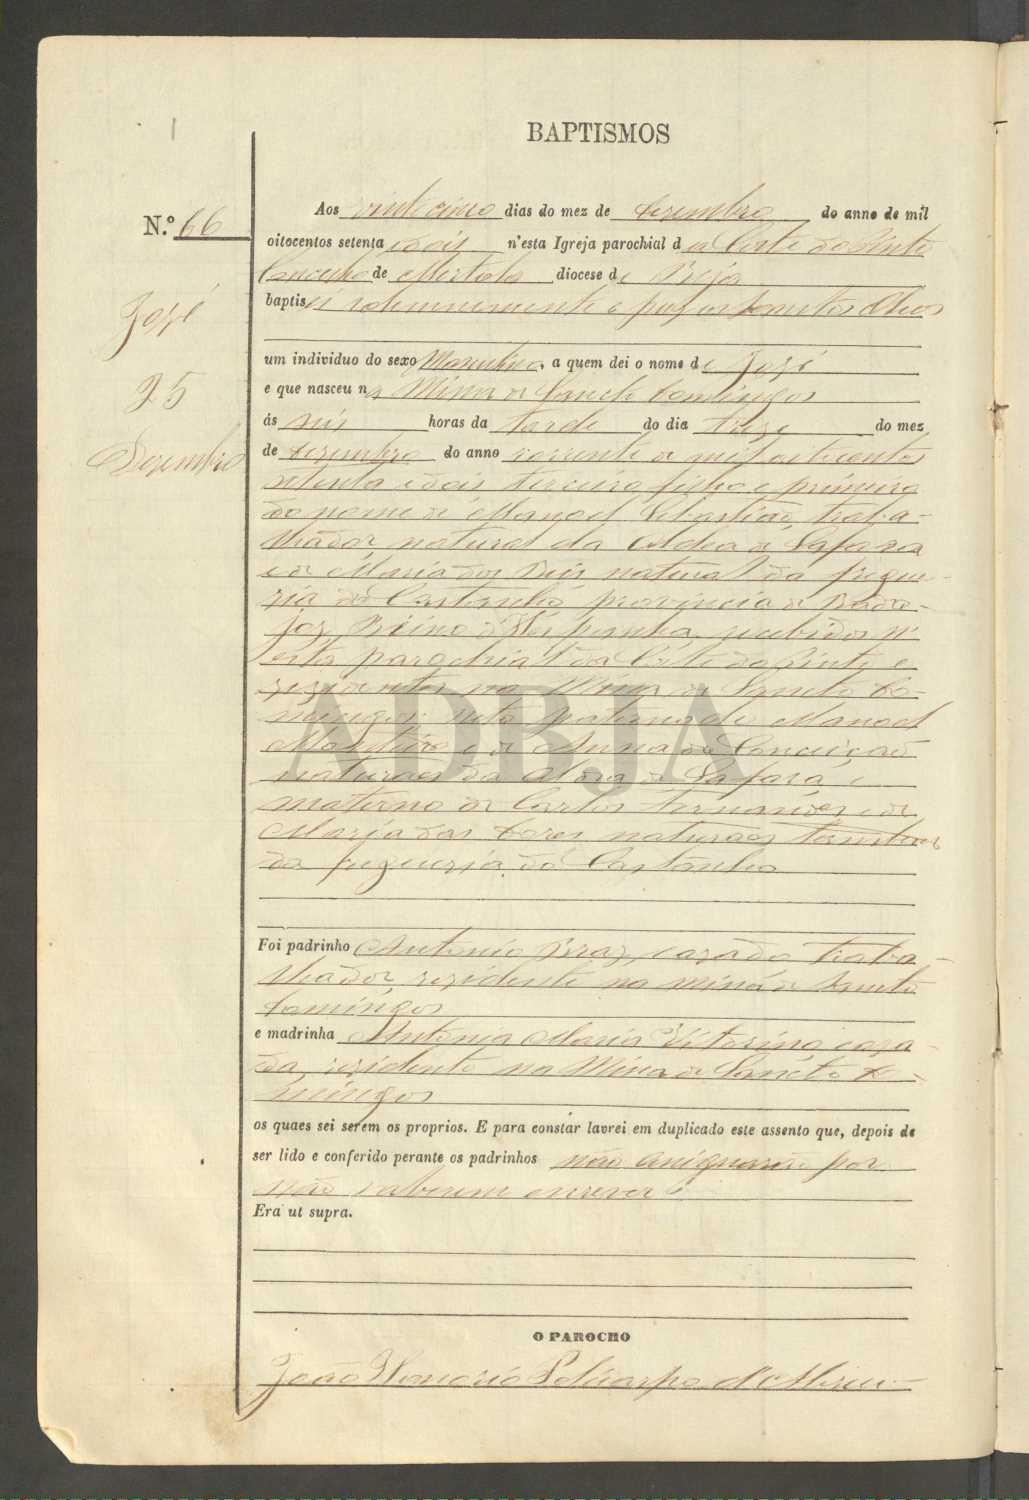 BAPTISMOS
N.º 66
José
25
Dezembro
Aos vinte cinco dias do mez de dezembro do anno de mil
oitocentos setenta e dois n'esta Igreja parochial da Corte do Pinto
Concelho de Mertola diocese de Beja
baptisei solemnemente e puz os Sanctos Oleos
um individuo do sexo Masculino, a quem dei o nome de José
e que nasceu na Mina de Sancto Domingos
ás seis horas da tarde do dia treze do mez
de dezembro do anno corrente de mil oitocentos
setenta e dois terceiro filho e primeiro
do nome de Manoel Sebastião traba-
lhador natural da Aldea de Safara
e de Maria dos Reis natural da fregue-
zia do Castanho provincia de Bada-
joz Reino d'Hespanha, recebidos n'
esta parochial da Corte do Pinto e
rezidentes na Mina de Sancto Do-
mingos; neto paterno de Manoel
e de Anna da Conceição
naturaes da Aldea de Safara e
materno de Carlos Fernandes e de
Maria das Dores naturaes tambem
da freguezia do Castanho
Foi padrinho Antonio Braz, cazado traba-
lhador, rezidente na mina de Sancto
Domingos
e madrinha Antonia Maria Vitorina caza-
da, rezidente na Mina de Sancto Do-
mingos
os quaes sei serem os proprios. E para constar lavrei em duplicado este assento que, depois de
ser lido e conferido perante os padrinhos não assignarão por
não saberem escrever
Era ut supra.
O PAROCHO
João Honorio Policarpo d'Abreu
ADBJA